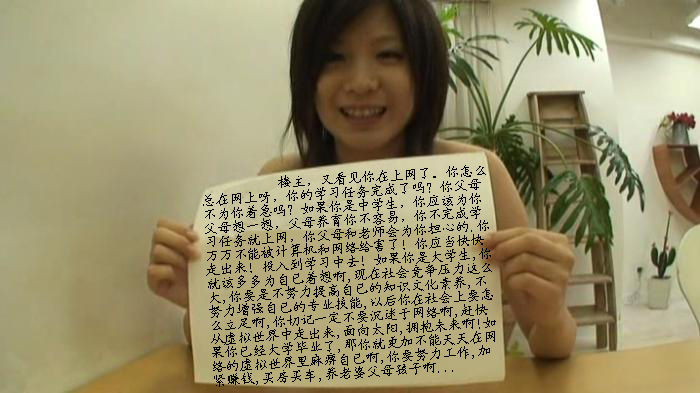 楼主，又看见你在上网了。你怎么
总在网上呀，你的学习任务完成了吗？你父母
不为你着急吗？如果你是中学生，你应该为你
父母想一想，父母养育你不容易，你不完成学
习任务就上网，你父母和老师会为你担心的，你
万万不能被计算机和网络给害了！你应当快快
走出来！投入到学习中去！如果你是大学生，你
就该多多为自己着想啊，现在社会竞争压力这么
大，你要是不努力提高自己的知识文化素养，不
努力增强自己的专业技能，以后你在社会上要怎
么立足啊，你切记一定不要沉迷于网络啊，赶快
从虚拟世界中走出来，面向太阳，拥抱未来啊！如
果你已经大学毕业了，那你就更加不能天天在网
络的虚拟世界里麻痹自己啊，你要努力工作，加
紧赚钱，买房买车，养老婆父母孩子啊...